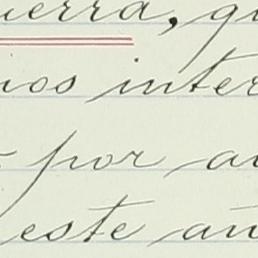 uerra, qu
nos inter
por au
este añ